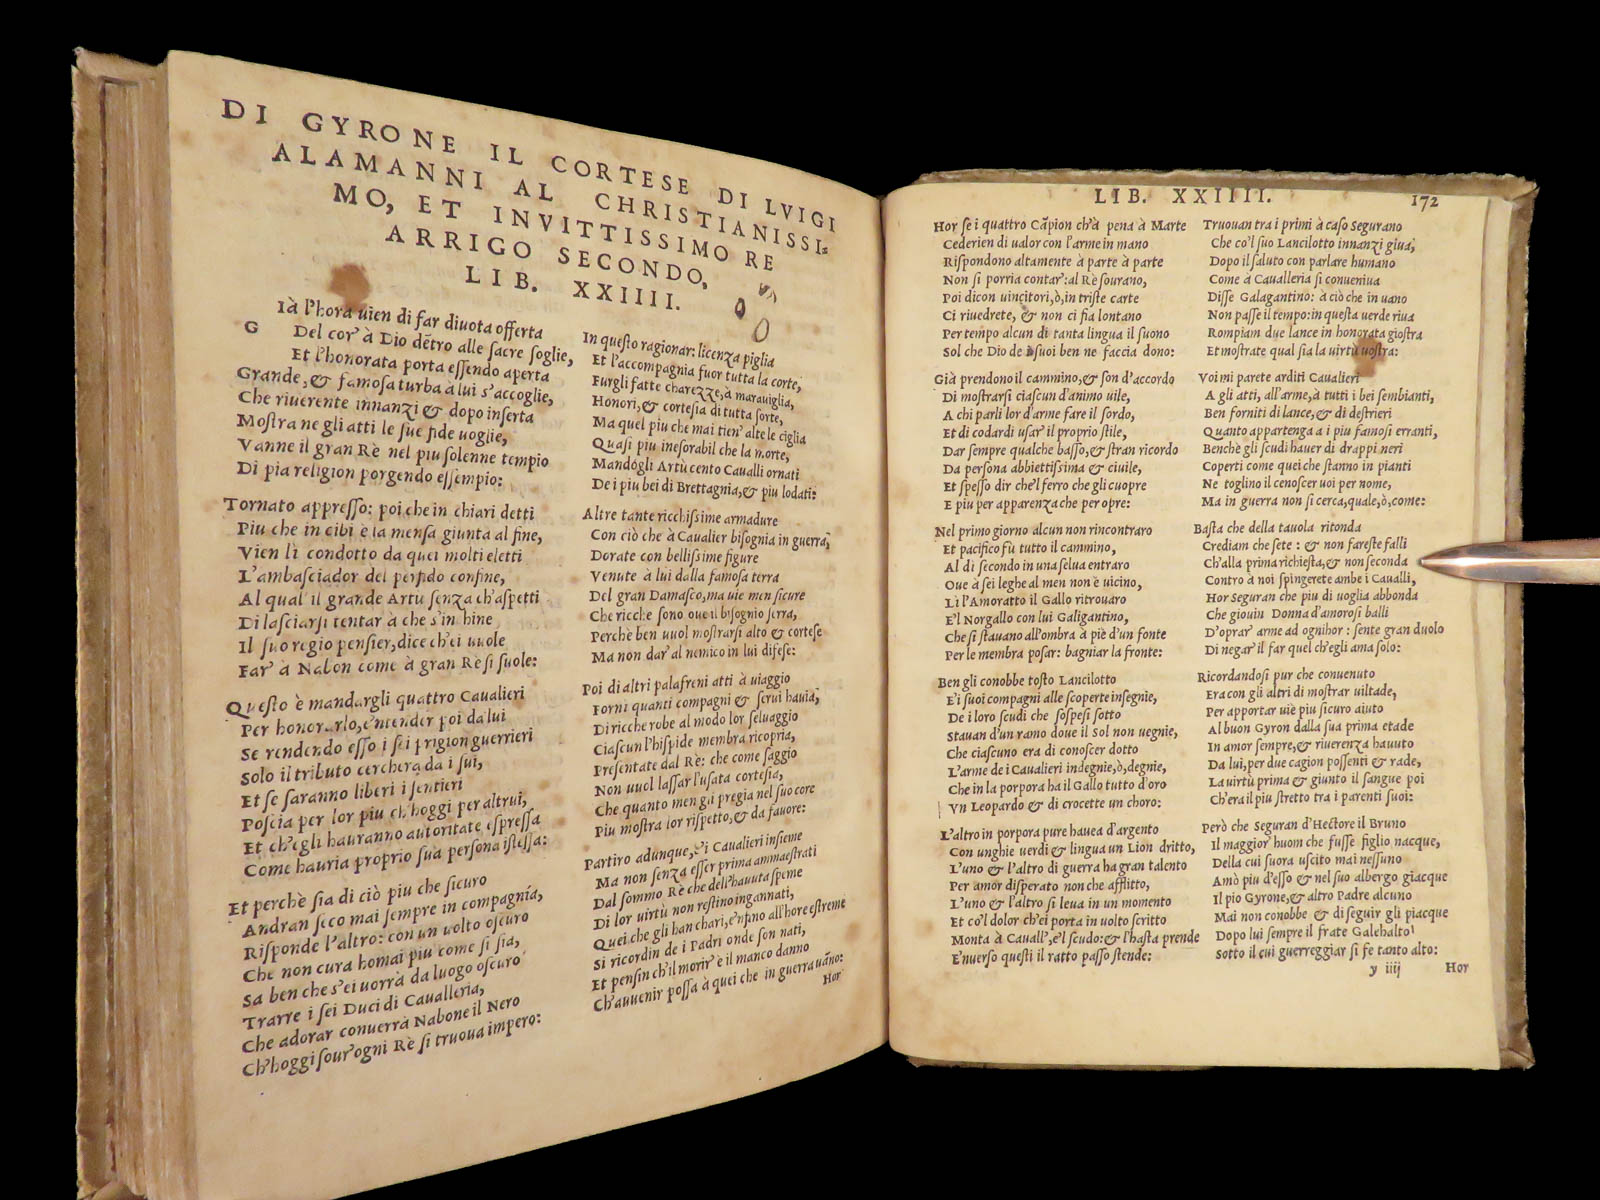 DI GYRONE IL CORTESE DI LVIGI
ALAMANNI AL CHRISTIANISSI-
MO, ET INVITTISSIMO RE
ARRIGO SECONDO,
LIB. XXIIII.
G
Ià l'hora uien di far diuota offerta
Del cor' à Dio dẽtro alle sacre soglie,
Et l'honorata porta essendo aperta
Grande, & famosa turba à lui s'accoglie,
Che riuerente innanzi & dopo inserta
Mostra ne gli atti le sue fide uoglie,
Vanne il gran Rè nel piu solenne tempio
Di pia religion porgendo essempio:
Tornato appresso: poi che in chiari detti
Piu che in cibi è la mensa giunta al fine,
Vien lì condotto da quei molti eletti
L'ambasciador del perfido confine,
Al qual il grande Artù senza ch'aspetti
Di lasciarsi tentar à che s'inchine
Il suo regio pensier, dice ch'ei uuole
Far' à Nabon come à gran Rè si suole:
Questo è mandargli quattro Caualieri
Per honorarlo, e'ntender poi da lui
Se rendendo esso i sei prigion guerrieri
Solo il tributo cercherà da i sui,
Et se saranno liberi i sentieri
Poscia per lor piu ch'hoggi per altrui,
Et ch'egli hauranno autoritate espressa
Come hauria proprio sua persona istessa:
Et perchè sia di ciò piu che sicuro
Andran seco mai sempre in compagnía,
Risponde l'altro: con un uolto oscuro
Che non cura homai piu come si sia,
Sa ben che s'ei uorrà da luogo oscuro
Trarre i sei Duci di Caualleria,
Che adorar conuerrà Nabone il Nero
Ch'hoggi sour'ogni Rè si truoua impero:
In questo ragionar: licenza piglia
Et l'accompagnia fuor tutta la corte,
Furgli fatte charezze, à marauiglia,
Honori, & cortesia di tutta sorte,
Ma quel piu che mai tien' alte le ciglia
Quasi piu inesorabil che la morte,
Mandógli Artù cento Caualli ornati
De i piu bei di Brettagnia, & piu lodati:
Altre tante ricchissime armadure
Con ciò che à Caualier bisognia in guerra,
Dorate con bellissime figure
Venute à lui dalla famosa terra
Del gran Damasco, ma uie men sicure
Che ricche sono oue il bisognio serra,
Perchè ben uuol mostrarsi alto & cortese
Ma non dar' al nemico in lui difese:
Poi di altri palafreni atti à uiaggio
Forni quanti compagni & serui hauia,
Di ricche robe al modo lor seluaggio
Ciascun l'hispide membra ricopria,
Presentate dal Rè: che come saggio
Non uuol lassar l'usata cortesia,
Che quanto men gli pregia nel suo core
Piu mostra lor rispetto, & da fauore:
Partiro adunque, e i Caualieri insieme
Ma non senza esser prima ammaestrati
Dal sommo Rè che dell'hauuta speme
Di lor uirtù non restino ingannati,
Quei che gli han chari, e'nfino all'hore estreme
Si ricordin de i Padri onde son nati,
Et pensin ch'il morir è il manco danno
Ch'auuenir possa à quei che in guerra uãno:
Hor
LIB. XXIIII.
172
Hor se i quattro Cãpion ch'à pena à Marte
Cederien di ualor con l'arme in mano
Rispondono altamente à parte à parte
Non si porria contar: al Rè sourano,
Poi dicon uincitori, ò, in triste carte
Ci riuedrete, & non ci fia lontano
Per tempo alcun di tanta lingua il suono
Sol che Dio de suoi ben ne faccia dono:
Già prendono il cammino, & son d'accordo
Di mostrarsi ciascun d'animo uile,
A chi parli lor d'arme fare il sordo,
Et di codardi usar' il proprio stile,
Dar sempre qualche basso, & stran ricordo
Da persona abbiettissima & ciuile,
Et spesso dir che'l ferro che gli cuopre
E piu per apparenza che per opre:
Nel primo giorno alcun non rincontraro
Et pacifico fù tutto il cammino,
Al di secondo in una selua entraro
Oue à sei leghe al men non è uicino,
Li l'Amoratto il Gallo ritrouaro
E'l Norgallo con lui Galigantino,
Che si stauano all'ombra à piè d'un fonte
Per le membra posar: bagniar la fronte:
Ben gli conobbe tosto Lancilotto
E i suoi compagni alle scoperte insegnie,
De i loro scudi che sospesi sotto
Stauan d'un ramo doue il Sol non uegnie,
Che ciascuno era di conoscer dotto
L'arme de i Caualieri indegnie, ò, degnie,
Che in la porpora ha il Gallo tutto d'oro
Vn Leopardo & di crocette un choro:
L'altro in porpora pure hauea d'argento
Con unghie uerdi & lingua un Lion dritto,
L'uno & l'altro di guerra ha gran talento
Per amor disperato non che afflitto,
L'uno & l'altro si leua in un momento
Et co'l dolor ch'ei porta in uolto scritto
Monta à Cauall', e'l scudo: & l'hasta prende
E'nuerso questi il ratto passo stende:
Truouan tra i primi à caso Segurano
Che co'l suo Lancilotto innanzi giua,
Dopo il saluto con parlare humano
Come à Caualleria si conueniua
Disse Galagantino: à ciò che in uano
Non passe il tempo: in questa uerde riua
Rompiam due lance in honorata giostra
Et mostrate qual sia la uirtù uostra:
Voi mi parete arditi Caualieri
A gli atti, all'arme, à tutti i bei sembianti,
Ben forniti di lance, & di destrieri
Quanto appartenga a i piu famosi erranti,
Benchè gli scudi hauer di drappi neri
Coperti come quei che stanno in pianti
Ne toglino il conoscer uoi per nome,
Ma in guerra non si cerca, quale, ò, come:
Basta che della tauola ritonda
Crediam che sete: & non fareste falli
Ch'alla prima richiesta, & non seconda
Contro à noi spingerete ambe i Caualli,
Hor Seguran che piu di uoglia abbonda
Che giouin Donna d'amorosi balli
D'oprar' arme ad ognihor: sente gran duolo
Di negar il far quel ch'egli ama solo:
Ricordandosi pur che conuenuto
Era con gli altri di mostrar uiltade,
Per apportar uiè piu sicuro aiuto
Al buon Gyron dalla sua prima etade
In amor sempre, & riuerenza hauuto
Da lui, per due cagion possenti & rade,
La uirtù prima & giunto il sangue poi
Ch'era il piu stretto tra i parenti suoi:
Però che Seguran d'Hectore il Bruno
Il maggior huom che fusse figlio nacque,
Della cui suora uscito mai nessuno
Amò piu d'esso & nel suo albergo giacque
Il pio Gyrone, & altro Padre alcuno
Mai non conobbe & di seguir gli piacque
Dopo lui sempre il frate Galehalto
Sotto il cui guerreggiar si fe tanto alto:
y iiij
Hor